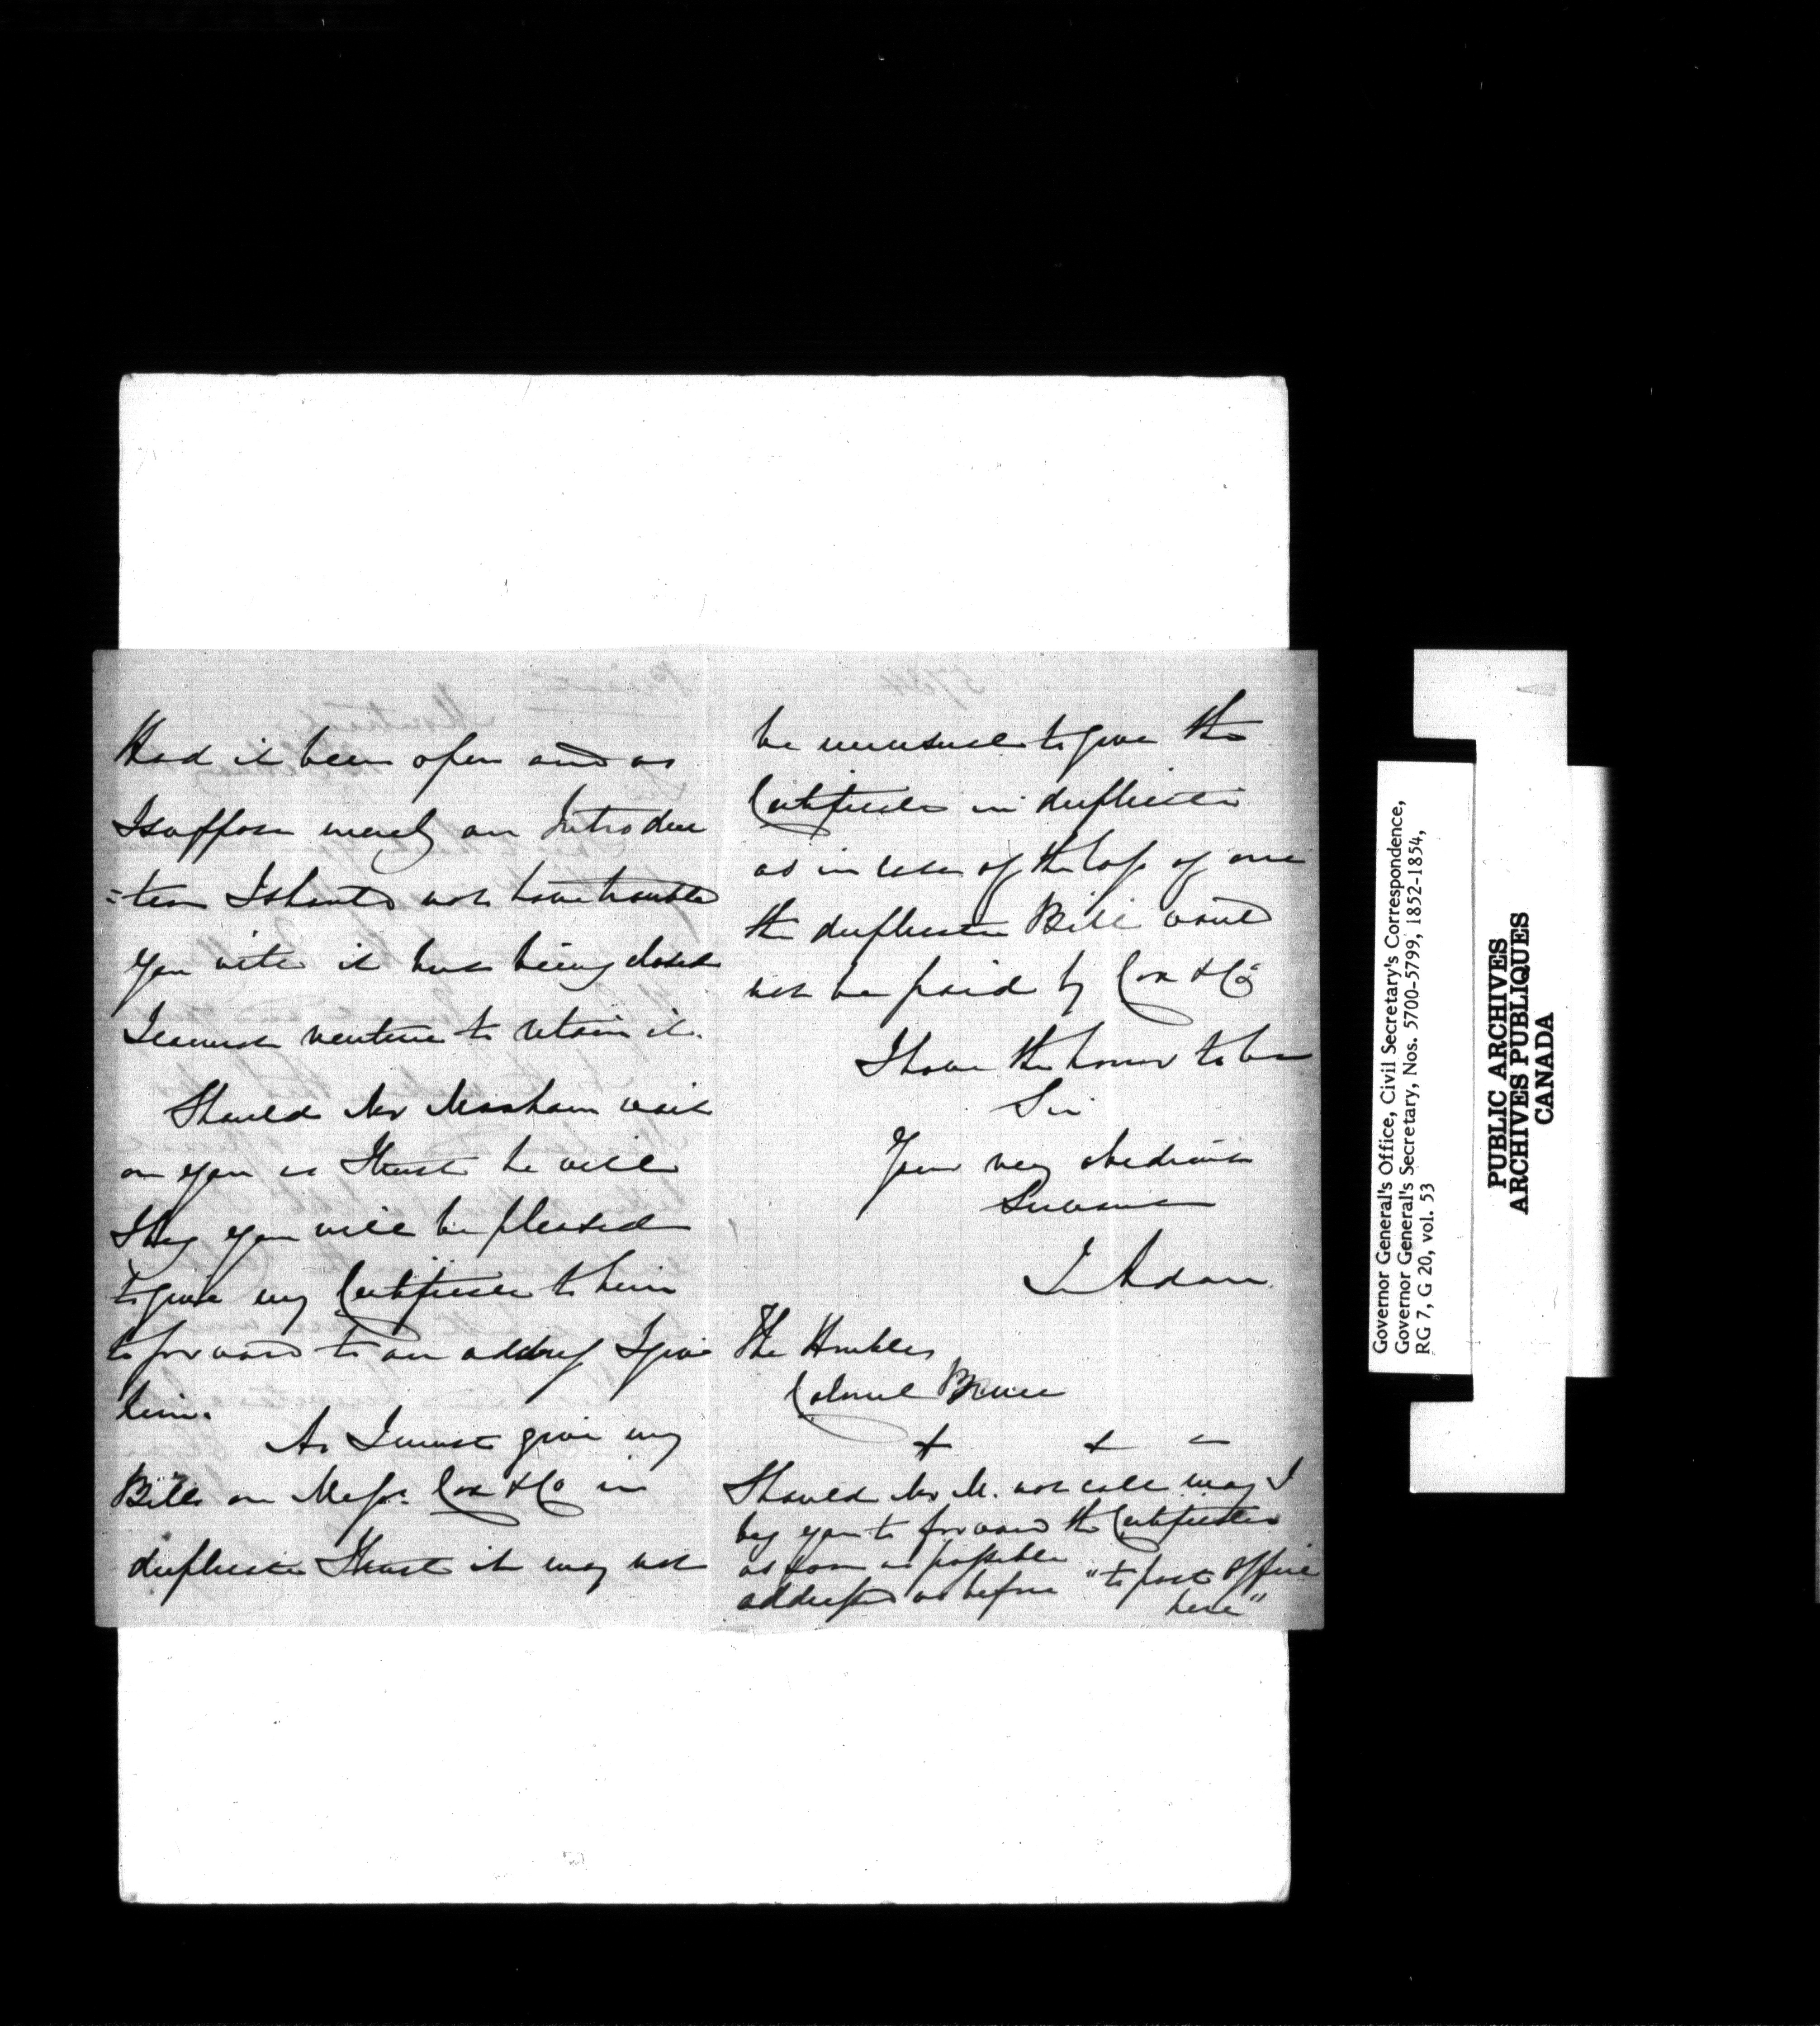 Had it been open and as
I suppose merely an Introduc
=tion I should not have troubled
you with it but being closed
I cannot venture to retain it.
Should Mr Marsham wait
on you as I trust he will
I beg you will be pleased
to give my Certificate to him
to forward to an address I give
him.
As I must give my
Bills on Messrs. Cox & Co in
duplicate I trust it may not
be unusual to give the
Certificate in duplicate
as in case of the loss of one
the duplicate Bill would
not be paid by Cox & Co
I have the honor to be
Sir
Your very obedient
Servant
Adam
The Honble
Colonel Bruce
Should Mr M. not call may I
beg you to forward the Certificates
as soon as possible
addressed as before "to post office
here"
Governor General's Office, Civil Secretary's Correspondence,
Governor General's Secretary, Nos. 5700-5799, 1852-1854,
RG 7, G 20, vol. 53
PUBLIC ARCHIVES
ARCHIVES PUBLIQUES
CANADA